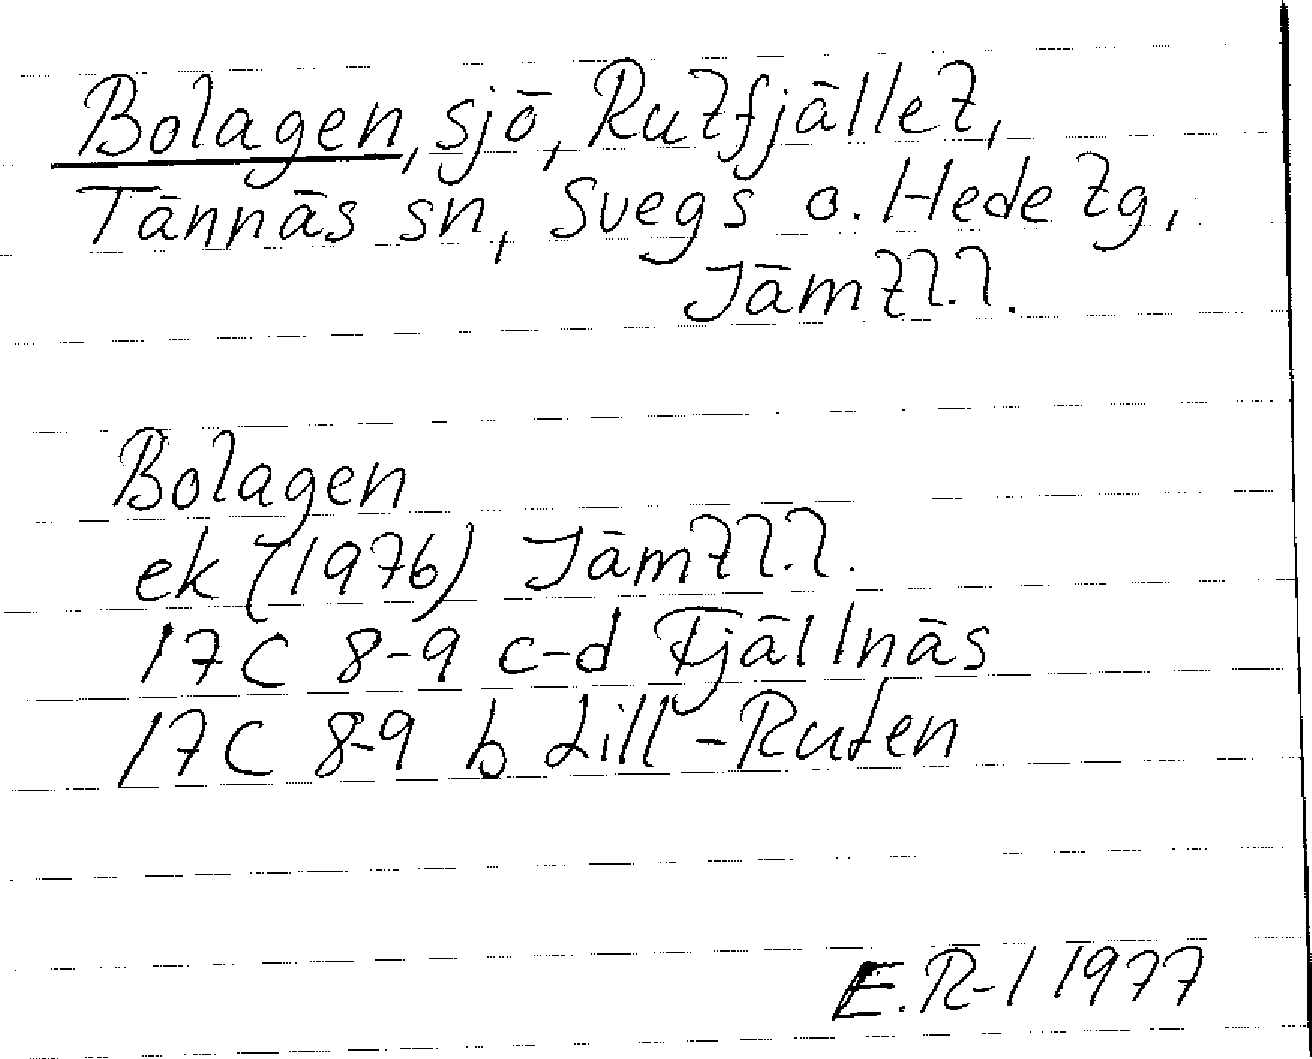 Bolagen, sjö, Rutfjället,
Tännäs sn, Svegs o. Hede tg,
Jämtl.l.
Bolagen
ek (1976) Jämtl.l.
17C 8-9 c-d Fjällnäs
17C 8-9 b Lill-Ruten
E.R-l 1977